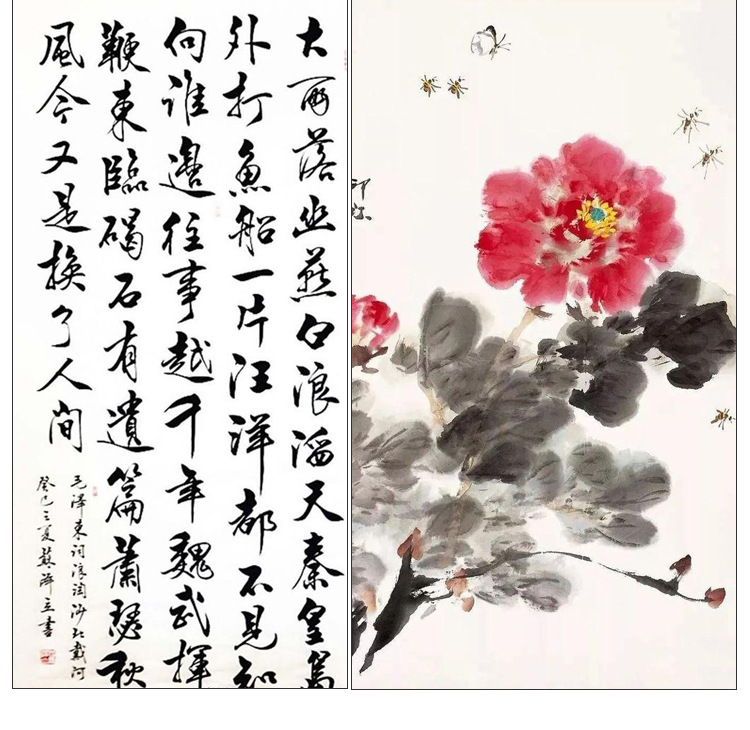 大雨落幽燕白浪滔天秦皇島
外打魚船一片汪洋都不見知
向誰邊往事越千年魏武揮
鞭東臨碣石有遺篇蕭瑟秋
風今又是換了人間
毛澤東詞浪淘沙北戴河
癸巳之夏蘇立書